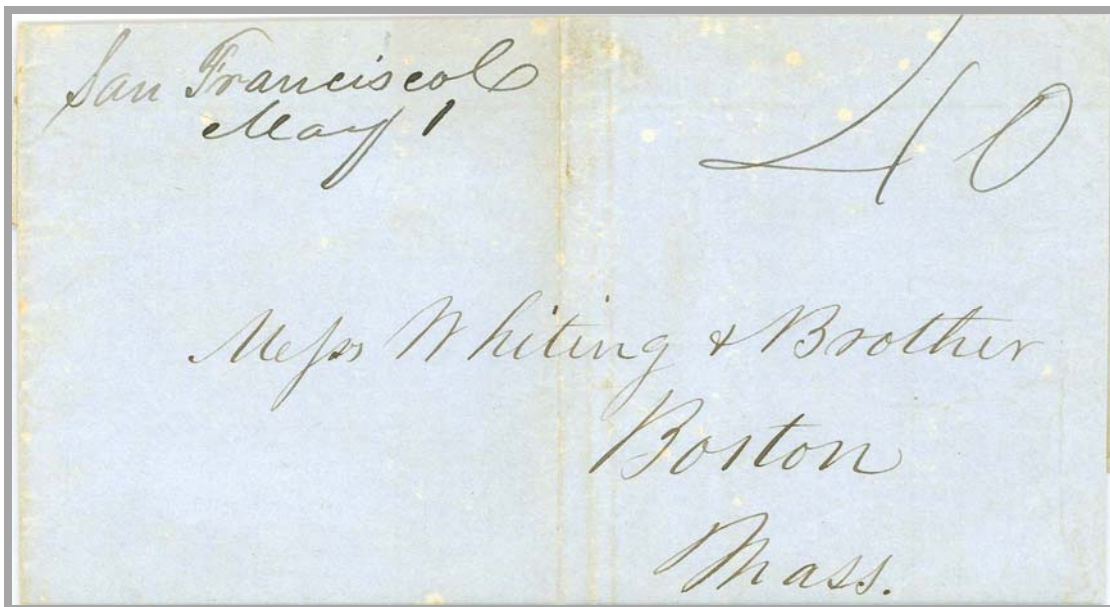 San Francisco
May 1
40
Meſsrs Whiting & Brother
Boston
Mass.